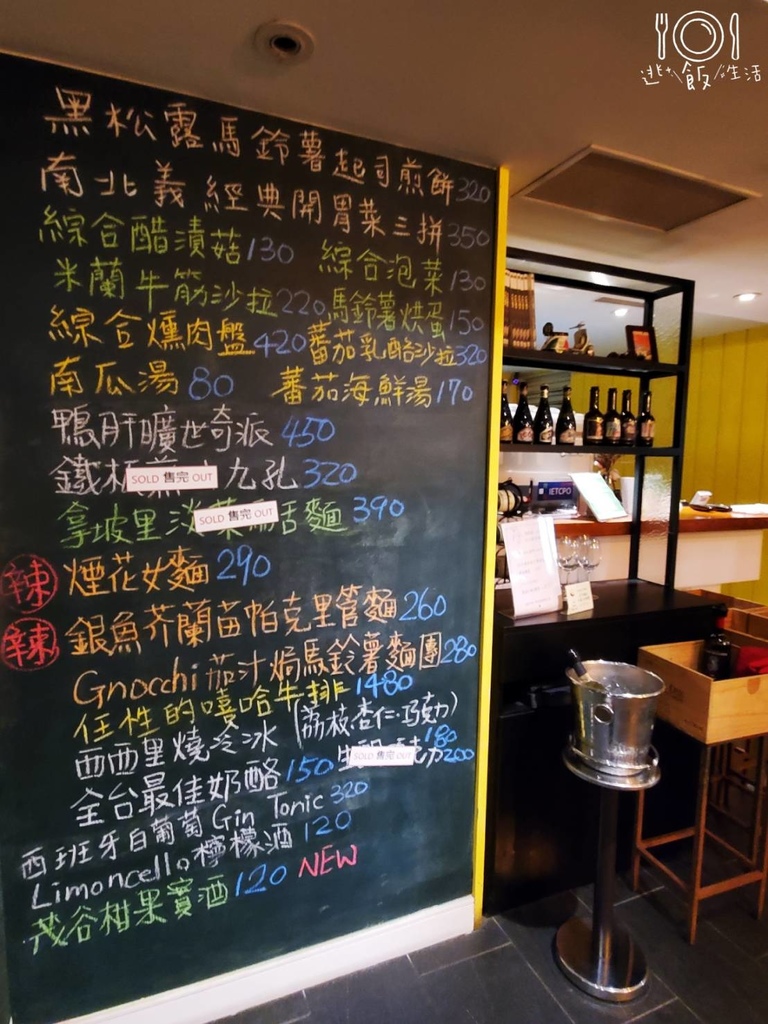 逃飯生活
黑松露馬鈴薯起司煎餅320
南北義經典開胃菜三拼350
綜合醋漬菇130 綜合泡菜130
米蘭牛筋沙拉220 馬鈴薯烘蛋150
綜合燻肉盤420 蕃茄乳酪沙拉320
南瓜湯80 蕃茄海鮮湯170
鴨肝曠世奇派450
鐵板 九孔320
SOLD 售完 OUT
拿坡里淡菜 舌麵390
SOLD 售完 OUT
辣 煙花女麵290
辣 銀魚芥蘭苗帕克里管麵260
Gnocchi茄汁焗馬鈴薯麵團280
任性的嘻哈牛排1480
西西里燒冷冰(荔枝.杏仁.巧克力)180
全台最佳奶酪150 200
SOLD 售完 OUT
西班牙白葡萄Gin Tonic320
Limoncello檸檬酒120
茂谷柑果實酒120 NEW
IETCPO